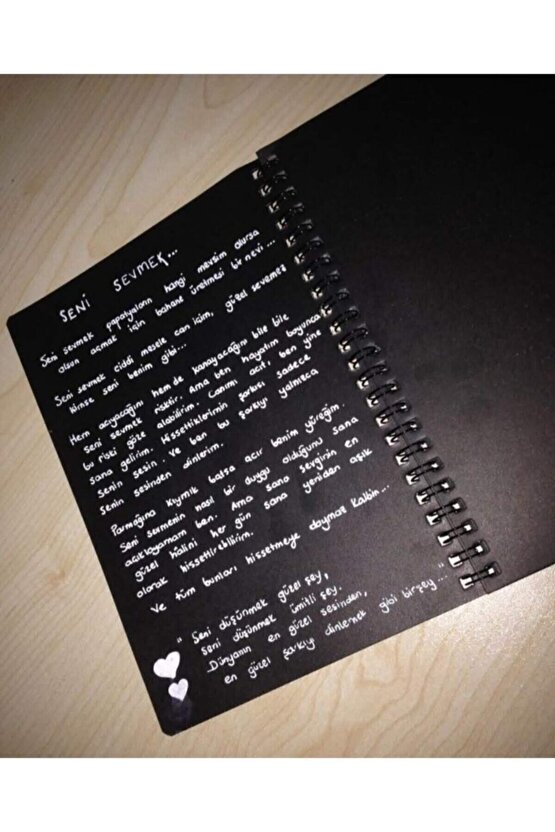 SENİ SEVMEK...
Seni sevmek papatyaların hangi mevsim olursa
olsun açmak için bahane üretmesi bir nevi...
Seni sevmek ciddi mesele can içim, güzel sevemez
kimse seni benim gibi...
Hem acıyacağını hem de kanayacağını bile bile
seni sevmek risktir. Ama ben hayatım boyunca
bu riski göze alabilirim. Canımı acıt, ben yine
sana gelirim. Hissettiklerimin şarkısı sadece
senin sesin. Ve ben bu şarkıyı yalnızca
senin sesinden dinlerim.
Parmağına kıymık batsa acır benim yüreğim.
Seni sevmenin nasıl bir duygu olduğunu sana
açıklayamam ben. Ama sana sevginin en
güzel halini her gün sana yeniden aşık
olarak hissettirebilirim.
Ve tüm bunları hissetmeye doymaz kalbim...
" Seni düşünmek güzel şey,
seni düşünmek ümitli şey.
Dünyanın en güzel sesinden,
en güzel şarkıyı dinlemek gibi birşey..."